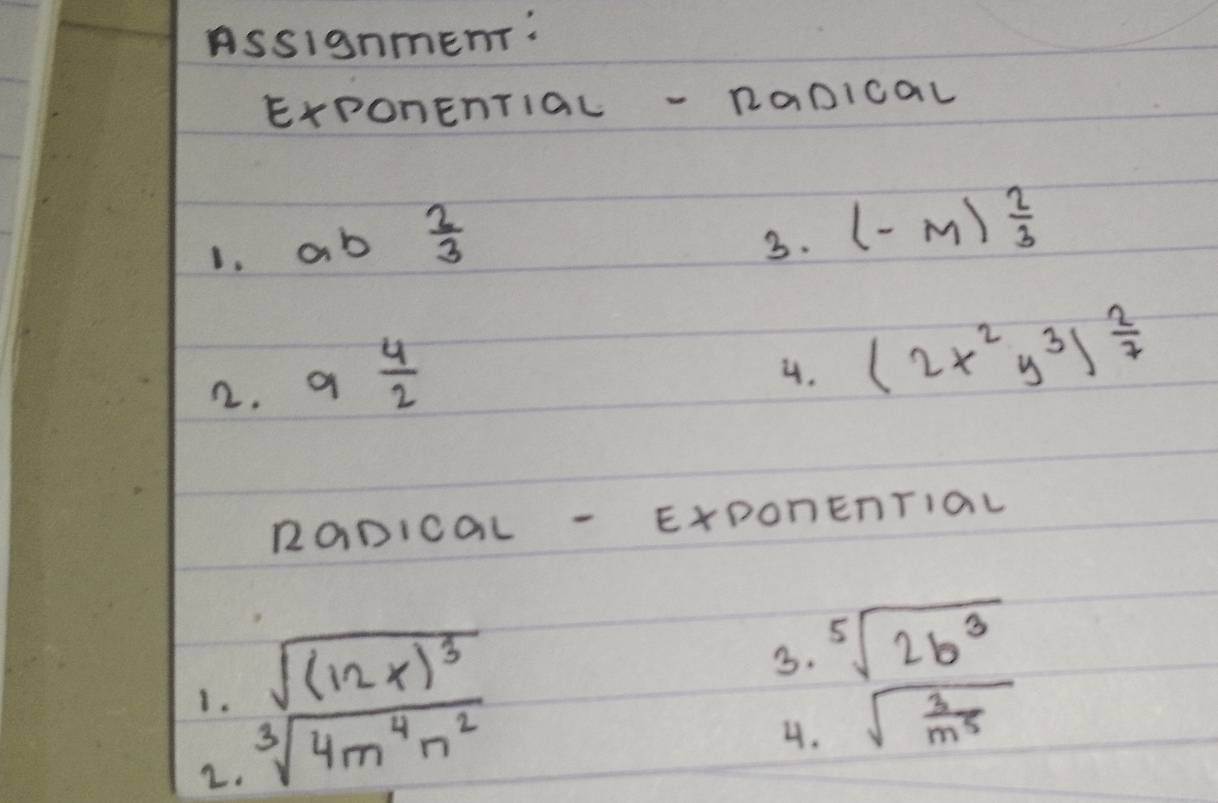 Assignment:
Exponential - Radical
1. ab^(2/3) 3. (-m)^(2/3)
2. a^(4/2) 4. (2x²y³)^(2/7)
Radical - Exponential
1. √((12x)³) 3. ⁵√(2b³)
2. ³√(4m⁴n²) 4. √(3/m⁵)